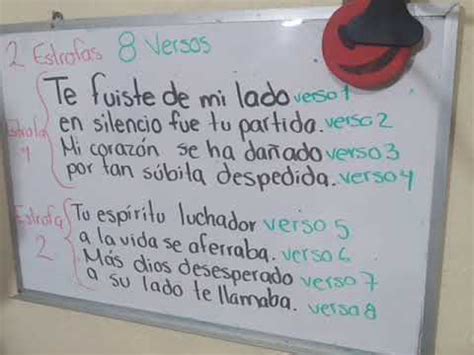 2 Estrofas 8 Versos
Te fuiste de mi lado verso 1
en silencio fue tu partida. verso 2
Estrofa 1
Mi corazón se ha dañado verso 3
por tan súbita despedida. verso 4
Tu espíritu luchador verso 5
Estrofa 2
a la vida se aferraba. verso 6
Más dios desesperado verso 7
a su lado te llamaba. verso 8